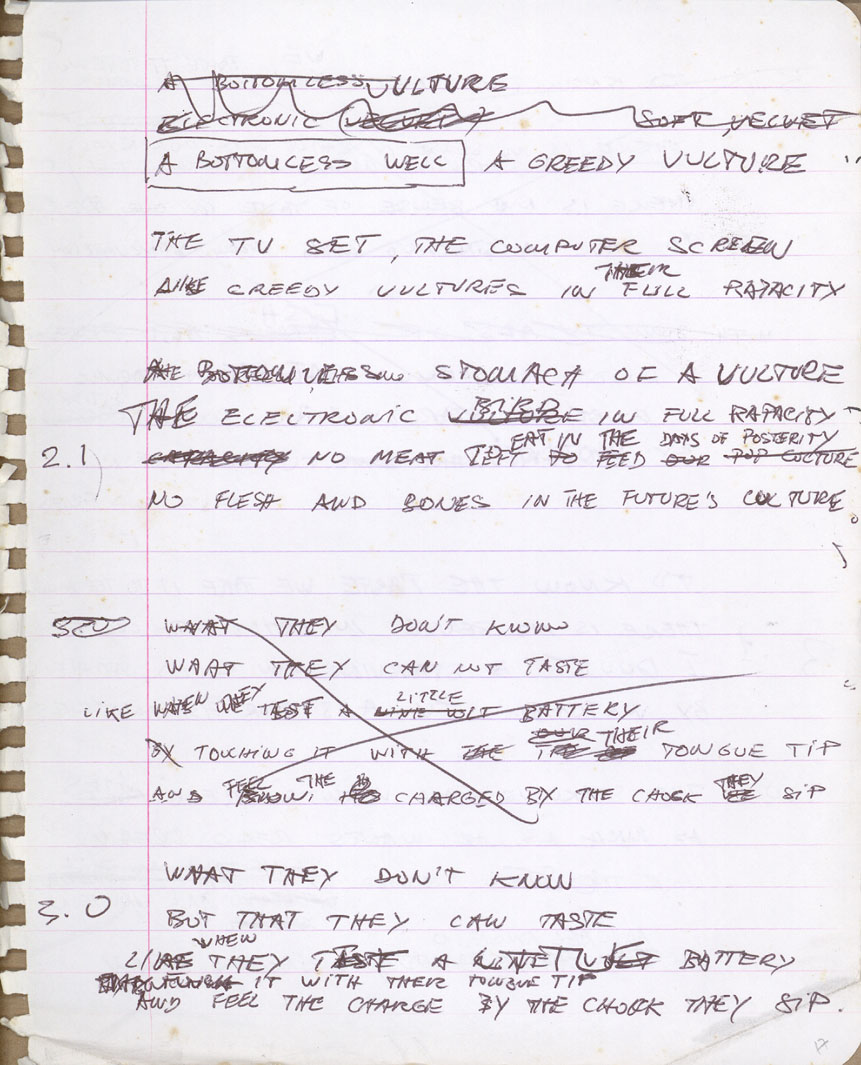 A BOTTOMLESS VULTURE
ELECTRONIC VELVET SOFT, VELVET
A BOTTOMLESS WELL A GREEDY VULTURE
THE TV SET, THE COMPUTER SCREEN
THEIR
LIKE GREEDY VULTURES IN FULL RAPACITY
THE BOTTOMLESS STOMACH OF A VULTURE
BIRD
THE ELECTRONIC VULTURE IN FULL RAPACITY
EAT IN THE DAYS OF POSTERITY
2.1 CAPACITY NO MEAT LEFT TO FEED OUR POP CULTURE
NO FLESH AND BONES IN THE FUTURE'S CULTURE
WHAT THEY DON'T KNOW
WHAT THEY CAN NOT TASTE
WHEN THEY LITTLE
LIKE TEST A NINE VOLT BATTERY
OUR THEIR
BY TOUCHING IT WITH THE TONGUE TIP
FEEL THE THEY
AND CHARGED BY THE CHOCK WE SIP
WHAT THEY DON'T KNOW
3.0
BUT THAT THEY CAN TASTE
WHEN
LIKE THEY TEST A NINE VOLT BATTERY
IT WITH THEIR TONGUE TIP
AND FEEL THE CHARGE BY THE CHOCK THEY SIP.
17